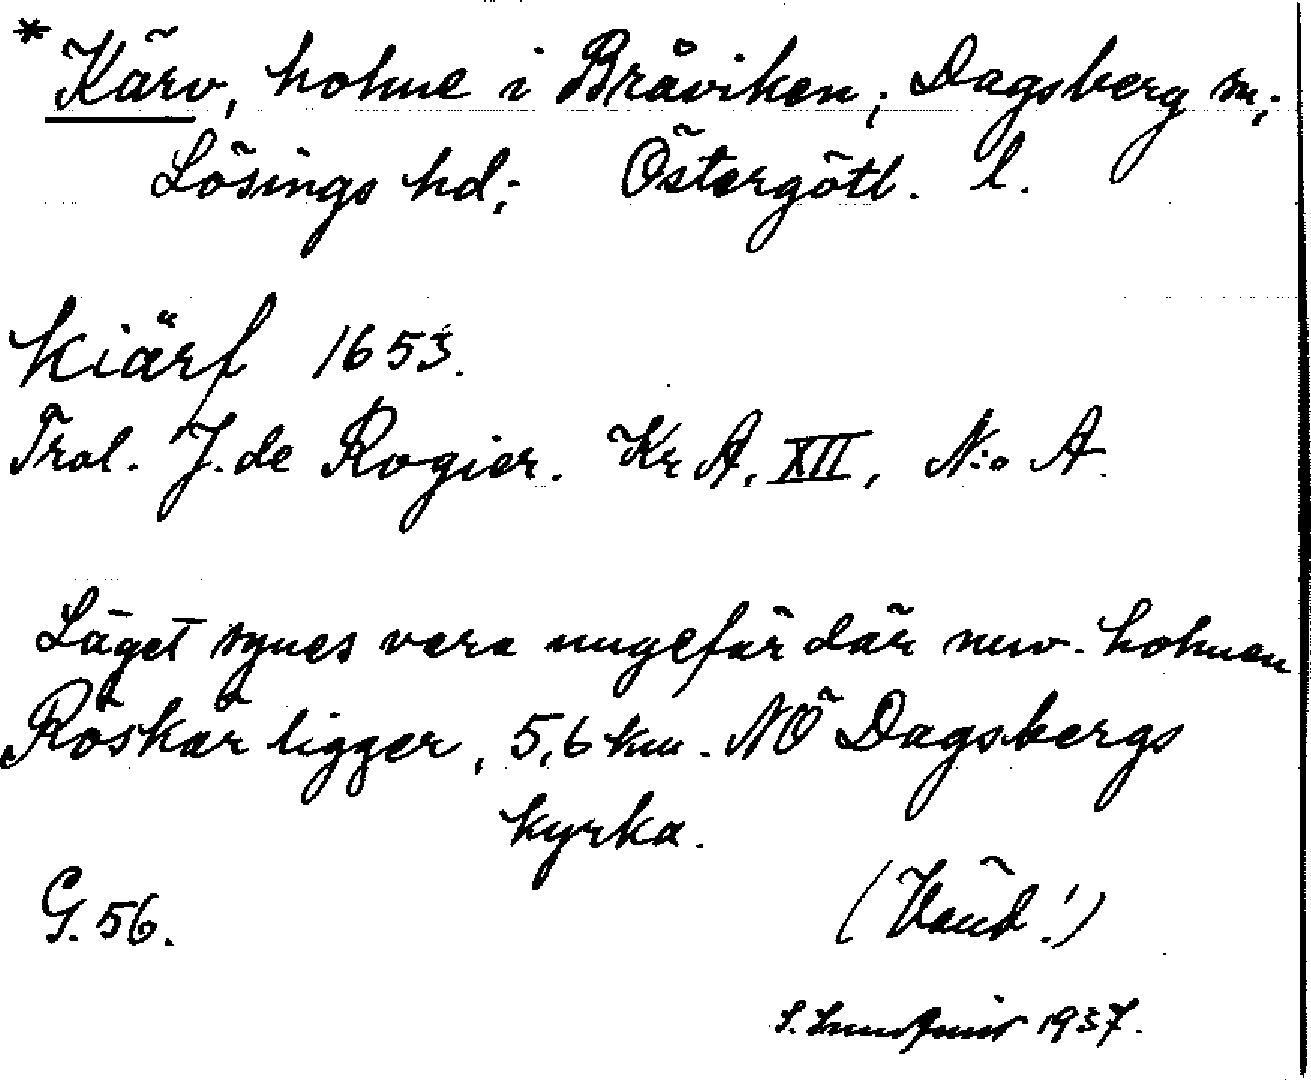 * Kärv, holme i Bråviken; Dagsberg sn;
Lösings hd; Östergötl. l.
Kiärf 1653.
Trol. J. de Rogier. Kr A. XII, N:o A.
Läget synes vara ungefär där nuv. holmen
Röskär ligger, 5,6 km. NÖ Dagsbergs
kyrka.
G. 56.
(Vänd!)
S. Lundqvist 1937.